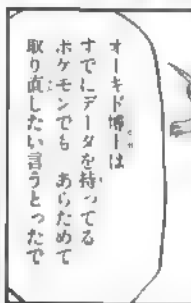 オーキド博士は
すでにデータを持ってる
ポケモンでも　あらためて
取り直したい言うとったで